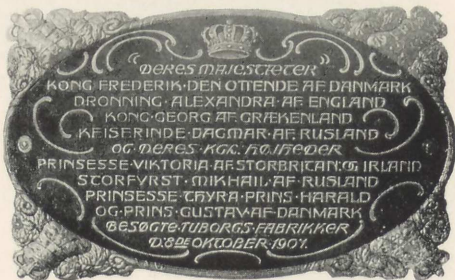 "DERES MAJESTÆTER"
KONG FREDERIK·DEN OTTENDE AF DANMARK
DRONNING·ALEXANDRA·AF ENGLAND
KONG·GEORG AF·GRÆKENLAND
KEISERINDE·DAGMAR·AF RUSLAND
OG DERES·KGL·HØJHEDER
PRINSESSE·VIKTORIA·AF STORBRITAN·OG IRLAND
STORFYRST·MIKHAIL·AF·RUSLAND
PRINSESSE·THYRA·PRINS·HARALD
OG·PRINS·GUSTAV·AF·DANMARK
BESØGTE·TUBORGS·FABRIKKER
D. 8DE OKTOBER·1907.